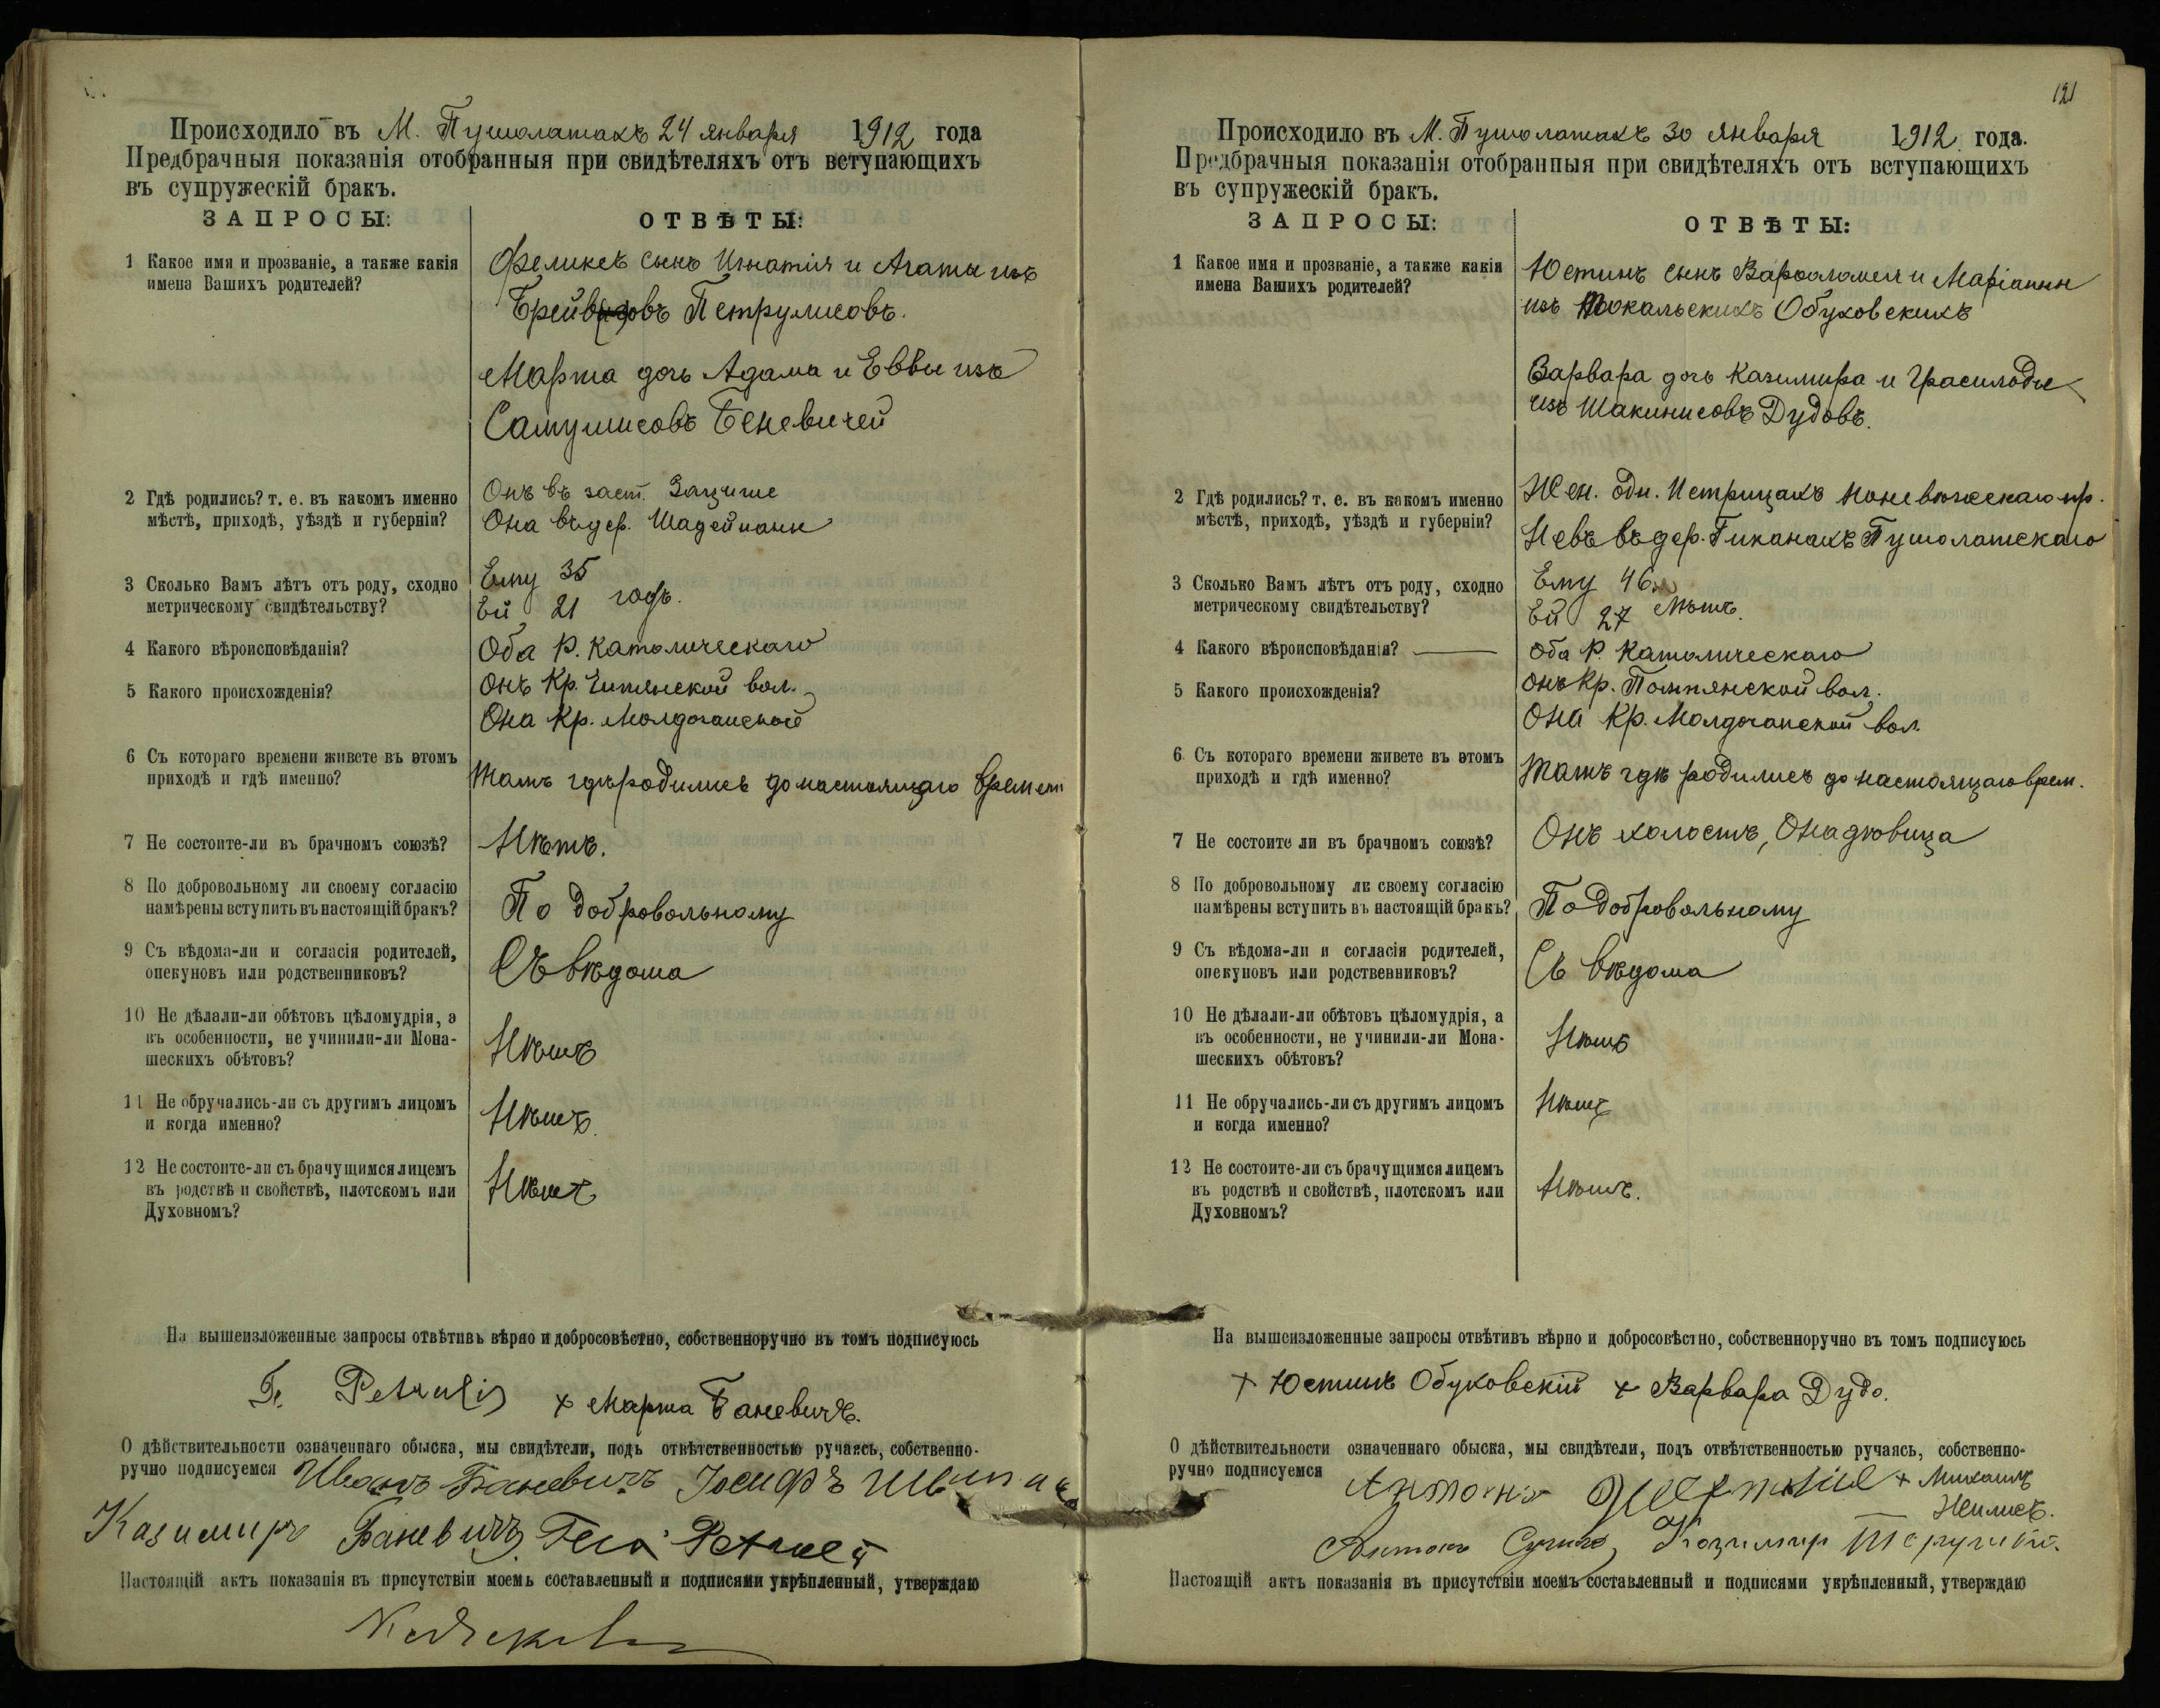 Происходило въ М. Пушолатахъ 24 января 1912 года
Предбрачныя показанія отобранныя при свидѣтеляхъ отъ вступающихъ
въ супружескій бракъ.
ЗАПРОСЫ: ОТВѢТЫ:
1 Какое имя и прозваніе, а также какія
имена Вашихъ родителей?
Феликсъ сынъ Игнатія и Агаты изъ
Петрулисовъ.
Марта дочь Адама и Еввы изъ
Самулисовъ Беневичей
2 Гдѣ родились? т. е. въ какомъ именно
мѣстѣ, приходѣ, уѣздѣ и губерніи?
Онъ въ заст. Зацише
Она въ дер. Шадейпаки
3 Сколько Вамъ лѣтъ отъ роду, сходно
метрическому свидѣтельству?
Ему 35
Ей 21 годъ.
4 Какого вѣроисповѣданія?
Оба Р. Католическаго
5 Какого происхожденія?
Онъ Кр. вол.
Она Кр.
6 Съ котораго времени живете въ этомъ
приходѣ и гдѣ именно?
Тамъ гдѣ родились до настоящаго времени
7 Не состоите-ли въ брачномъ союзѣ?
Нѣтъ.
8 По добровольному ли своему согласію
намѣрены вступить въ настоящій бракъ?
По добровольному
9 Съ вѣдома-ли и согласія родителей,
опекуновъ или родственниковъ?
Съ вѣдома
10 Не дѣлали-ли обѣтовъ цѣломудрія, а
въ особенности, не учинили-ли Мона-
шескихъ обѣтовъ?
Нѣтъ
11 Не обручались-ли съ другимъ лицомъ
и когда именно?
Нѣтъ.
12 Не состоите-ли съ брачущимся лицемъ
въ родствѣ и свойствѣ, плотскомъ или
Духовномъ?
Нѣтъ
На вышеизложенные запросы отвѣтивъ вѣрно и добросовѣстно, собственноручно въ томъ подписуюсь
Petrulis + Марта Баневичъ.
О дѣйствительности означеннаго обыска, мы свидѣтели, подъ отвѣтственностью ручаясь, собственно-
ручно подписуемся Иванъ Баневичъ Іосифъ
Казимиръ Баневичъ.
Настоящій актъ показанія въ присутствіи моемъ составленный и подписями укрѣпленный, утверждаю
121
Происходило въ М. Пушолатахъ 30 января 1912 года.
Предбрачныя показанія отобранныя при свидѣтеляхъ отъ вступающихъ
въ супружескій бракъ.
ЗАПРОСЫ: ОТВѢТЫ:
1 Какое имя и прозваніе, а также какія
имена Вашихъ родителей?
Юстинъ сынъ Варѳоломея и Маріанны
изъ Обуховскихъ
Варвара дочь Казимира и
изъ Шакинисовъ Дудовъ.
2 Гдѣ родились? т. е. въ какомъ именно
мѣстѣ, приходѣ, уѣздѣ и губерніи?
Жен. пр.
Нев. въ дер. Гиканахъ Пушолатскаго
3 Сколько Вамъ лѣтъ отъ роду, сходно
метрическому свидѣтельству?
Ему 46.
Ей 27 лѣтъ.
4 Какого вѣроисповѣданія?
Оба Р. Католическаго
5 Какого происхожденія?
Онъ Кр. Помпянской вол.
Она Кр. вол.
6 Съ котораго времени живете въ этомъ
приходѣ и гдѣ именно?
Тамъ гдѣ родились до настоящаго врем.
7 Не состоите ли въ брачномъ союзѣ?
Онъ холостъ, Она дѣвица
8 По добровольному ли своему согласію
намѣрены вступить въ настоящій бракъ?
По добровольному
9 Съ вѣдома-ли и согласія родителей,
опекуновъ или родственниковъ?
Съ вѣдома
10 Не дѣлали-ли обѣтовъ цѣломудрія, а
въ особенности, не учинили-ли Мона-
шескихъ обѣтовъ?
Нѣтъ
11 Не обручались-ли съ другимъ лицомъ
и когда именно?
Нѣтъ
12 Не состоите-ли съ брачущимся лицемъ
въ родствѣ и свойствѣ, плотскомъ или
Духовномъ?
Нѣтъ.
На вышеизложенные запросы отвѣтивъ вѣрно и добросовѣстно, собственноручно въ томъ подписуюсь
+ Юстинъ Обуховскій + Варвара Дудо.
О дѣйствительности означеннаго обыска, мы свидѣтели, подъ отвѣтственностью ручаясь, собственно-
ручно подписуемся Антонъ + Михаилъ
Антонъ Казимир
Настоящій актъ показанія въ присутствіи моемъ составленный и подписями укрѣпленный, утверждаю